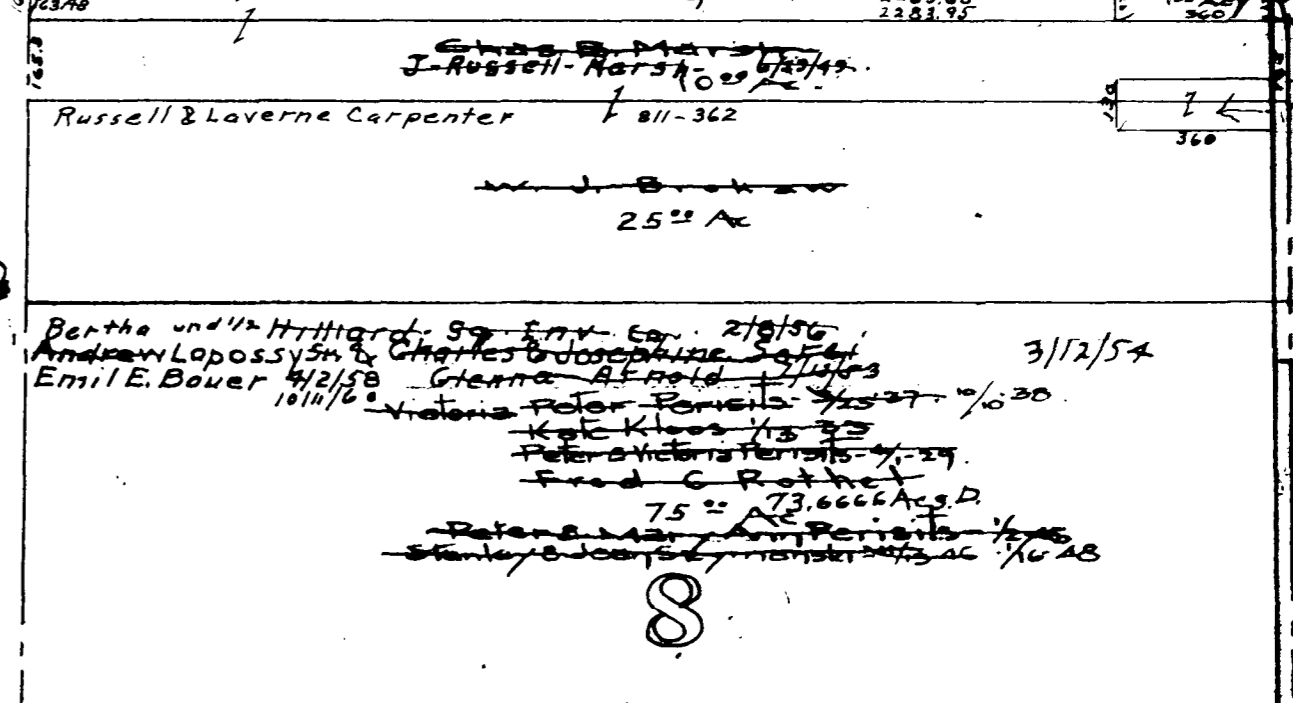 163.48
2283.95
360
165.3
Chas B. Marsh
J-Russell-Marsh- 6/29/49.
10 00 Ac.
Russell & Laverne Carpenter 811-362
130
360
W. J. Brokaw
25 00 Ac
Bertha und 1/2 Hilliard Sq Inv Co. 2/8/56
Andrew Lapossy Sr. & Charles & Josephine 3/12/54
Emil E. Bauer 4/2/58 Glenna Arnold
10/11/60
Victoria Peter Perisits 10/10 38.
Kate Kloos 1/13 33
Peter & Victoria Perisits - 4/1-29.
Fred G Rothe
75 00 Ac 73.6666 Ac S.D.
Peter & Mary Ann Perisits
Stanley & Joan Szymanski 1/16 48
8